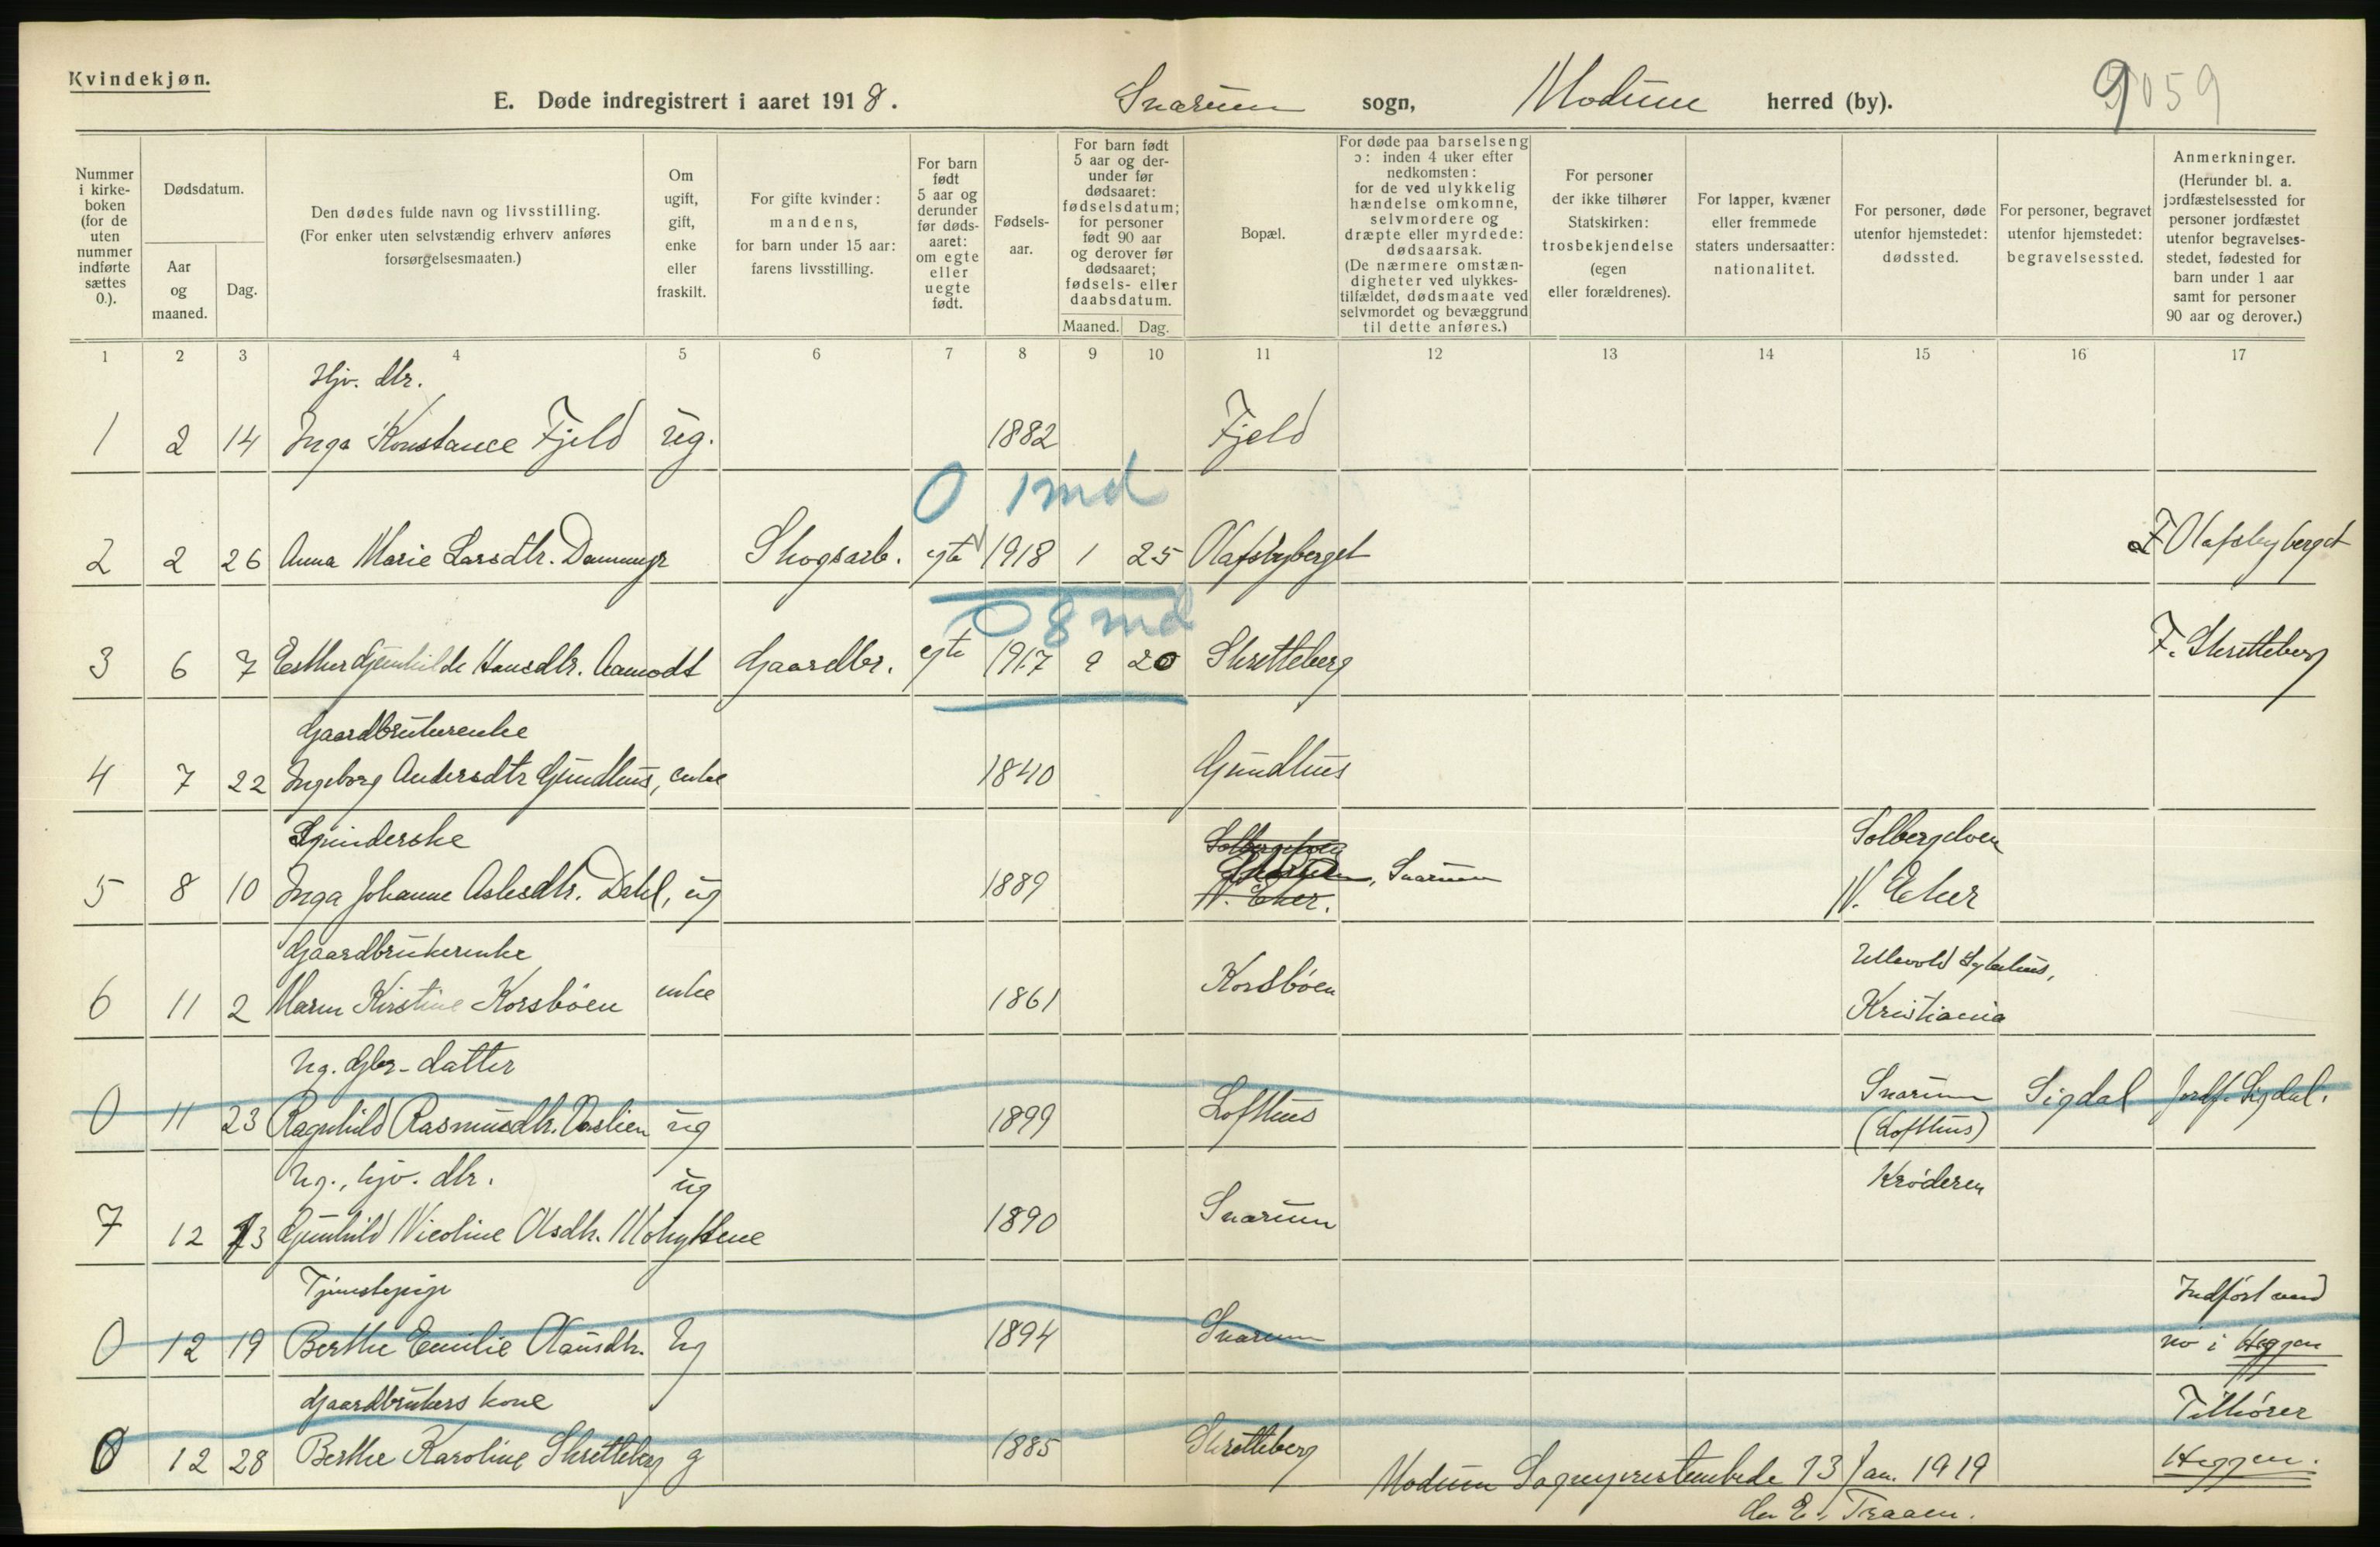 Kvindekjøn.
E. Døde indregistrert i aaret 1918. Snarum sogn, Modum herred (by).
9059
Nummer i kirkeboken (for de uten nummer indførte sættes 0.).
Dødsdatum.
Aar og maaned.
Dag.
Den dødes fulde navn og livsstilling.
(For enker uten selvstændig erhverv anføres forsørgelsesmaaten.)
Om ugift, gift, enke eller fraskilt.
For gifte kvinder: mandens, for barn under 15 aar: farens livsstilling.
For barn født 5 aar og derunder før dødsaaret: om egte eller uegte født.
Fødselsaar.
For barn født 5 aar og derunder før dødsaaret: fødselsdatum; for personer født 90 aar og derover før dødsaaret; fødsels- eller daabsdatum.
Maaned.
Dag.
Bopæl.
For døde paa barselseng ɔ: inden 4 uker efter nedkomsten: for de ved ulykkelig hændelse omkomne, selvmordere og dræpte eller myrdede: dødsaarsak. (De nærmere omstændigheter ved ulykkestilfældet, dødsmaate ved selvmordet og bevæggrund til dette anføres.)
For personer der ikke tilhører Statskirken: trosbekjendelse (egen eller forældrenes).
For lapper, kvæner eller fremmede staters undersaatter: nationalitet.
For personer, døde utenfor hjemstedet: dødssted.
For personer, begravet utenfor hjemstedet: begravelsessted.
Anmerkninger. (Herunder bl. a. jordfæstelsessted for personer jordfæstet utenfor begravelsesstedet, fødested for barn under 1 aar samt for personer 90 aar og derover.)
1 2 3 4 5 6 7 8 9 10 11 12 13 14 15 16 17
Hjv. dtr.
1 2 14 Inga Konstance Fjeld ug. 1882 Fjeld
0 1 md
2 2 26 Anna Marie Larsdtr. Dammyr Skogsarb. egte 1918 1 25 Olafsbyberget F Olafsbyberget
0 8 md
3 6 7 Esther Gunhilde Hansdtr. Aamodt Gaardbr. egte 1917 9 20 Skretteberg F. Skretteberg
Gaardbrukerenke
4 7 22 Ingeborg Andersdtr Gundhus, enke 1840 Gundhus
Spinderske Solbergelven Solbergelven
5 8 10 Inga Johanne Aslesdtr. Dahl, ug 1889 , Snarum
N. Eker. N. Eker
Gaardbrukerenke Ullevold Sykehus,
6 11 2 Maren Kirstine Korsbøen enke 1861 Korsbøen Kristiania
Ug. gbr-datter
0 11 23 Ragnhild Rasmusdtr. ug 1899 Lofthus Snarum (Lofthus) Sigdal Jordf. Sigdal.
Ug., hjv. dtr. ug Krøderen
7 12 13 Gunhild Nicoline Olsdtr. Mohyttene 1890 Snarum
Tjenestepige Indført med
0 12 19 Berthe Emilie Klausdtr. Ug 1894 Snarum no i Heggen
Gaardbrukers kone Tilhører
0 12 28 Berthe Karoline Skretteberg g 1885 Skretteberg Heggen.
Modum Sogneprestembede 13 Jan. 1919
E. Traaen.